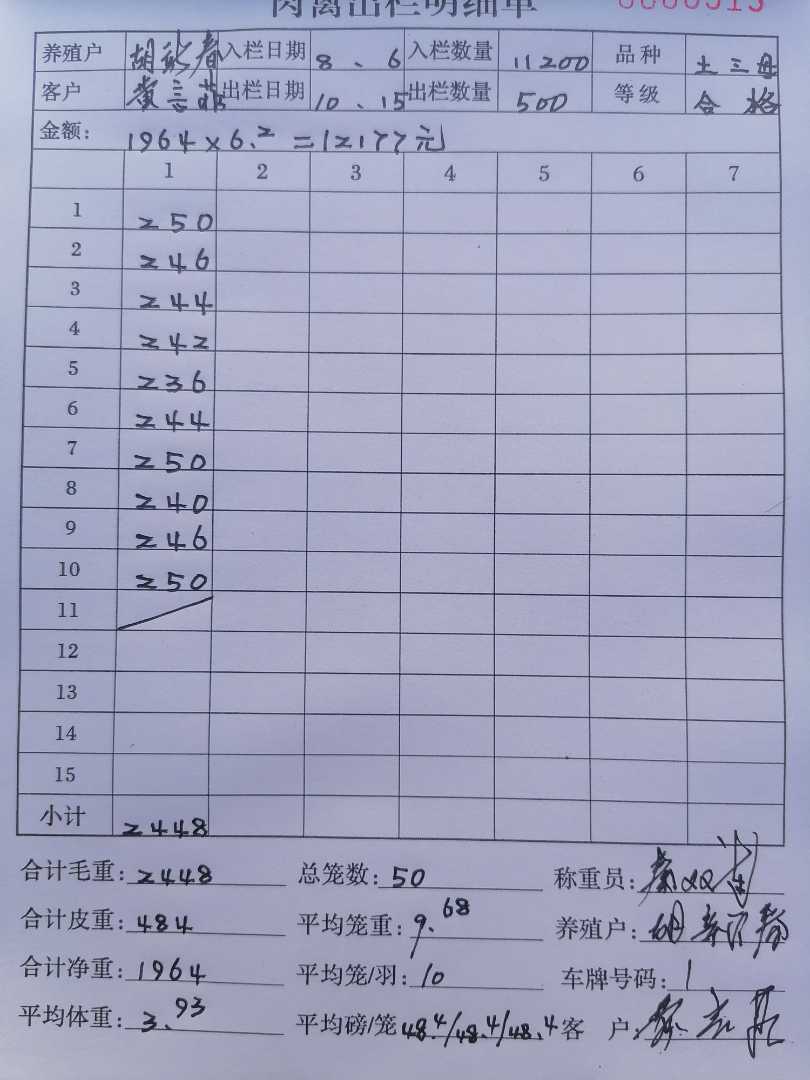 肉禽出栏明细单 0000513
养殖户 胡新春 入栏日期 8、6 入栏数量 11200 品种 土三母
客户 黄言 出栏日期 10、15 出栏数量 500 等级 合格
金额: 1964×6.2=12177元
1 2 3 4 5 6 7
1 250
2 246
3 244
4 242
5 236
6 244
7 250
8 240
9 246
10 250
11
12
13
14
15
小计 2448
合计毛重: 2448 总笼数: 50 称重员:
合计皮重: 484 平均笼重: 9.68 养殖户: 胡新春
合计净重: 1964 平均笼/羽: 10 车牌号码: 1
平均体重: 3.93 平均磅/笼 48.4/48.4/48.4 客 户: